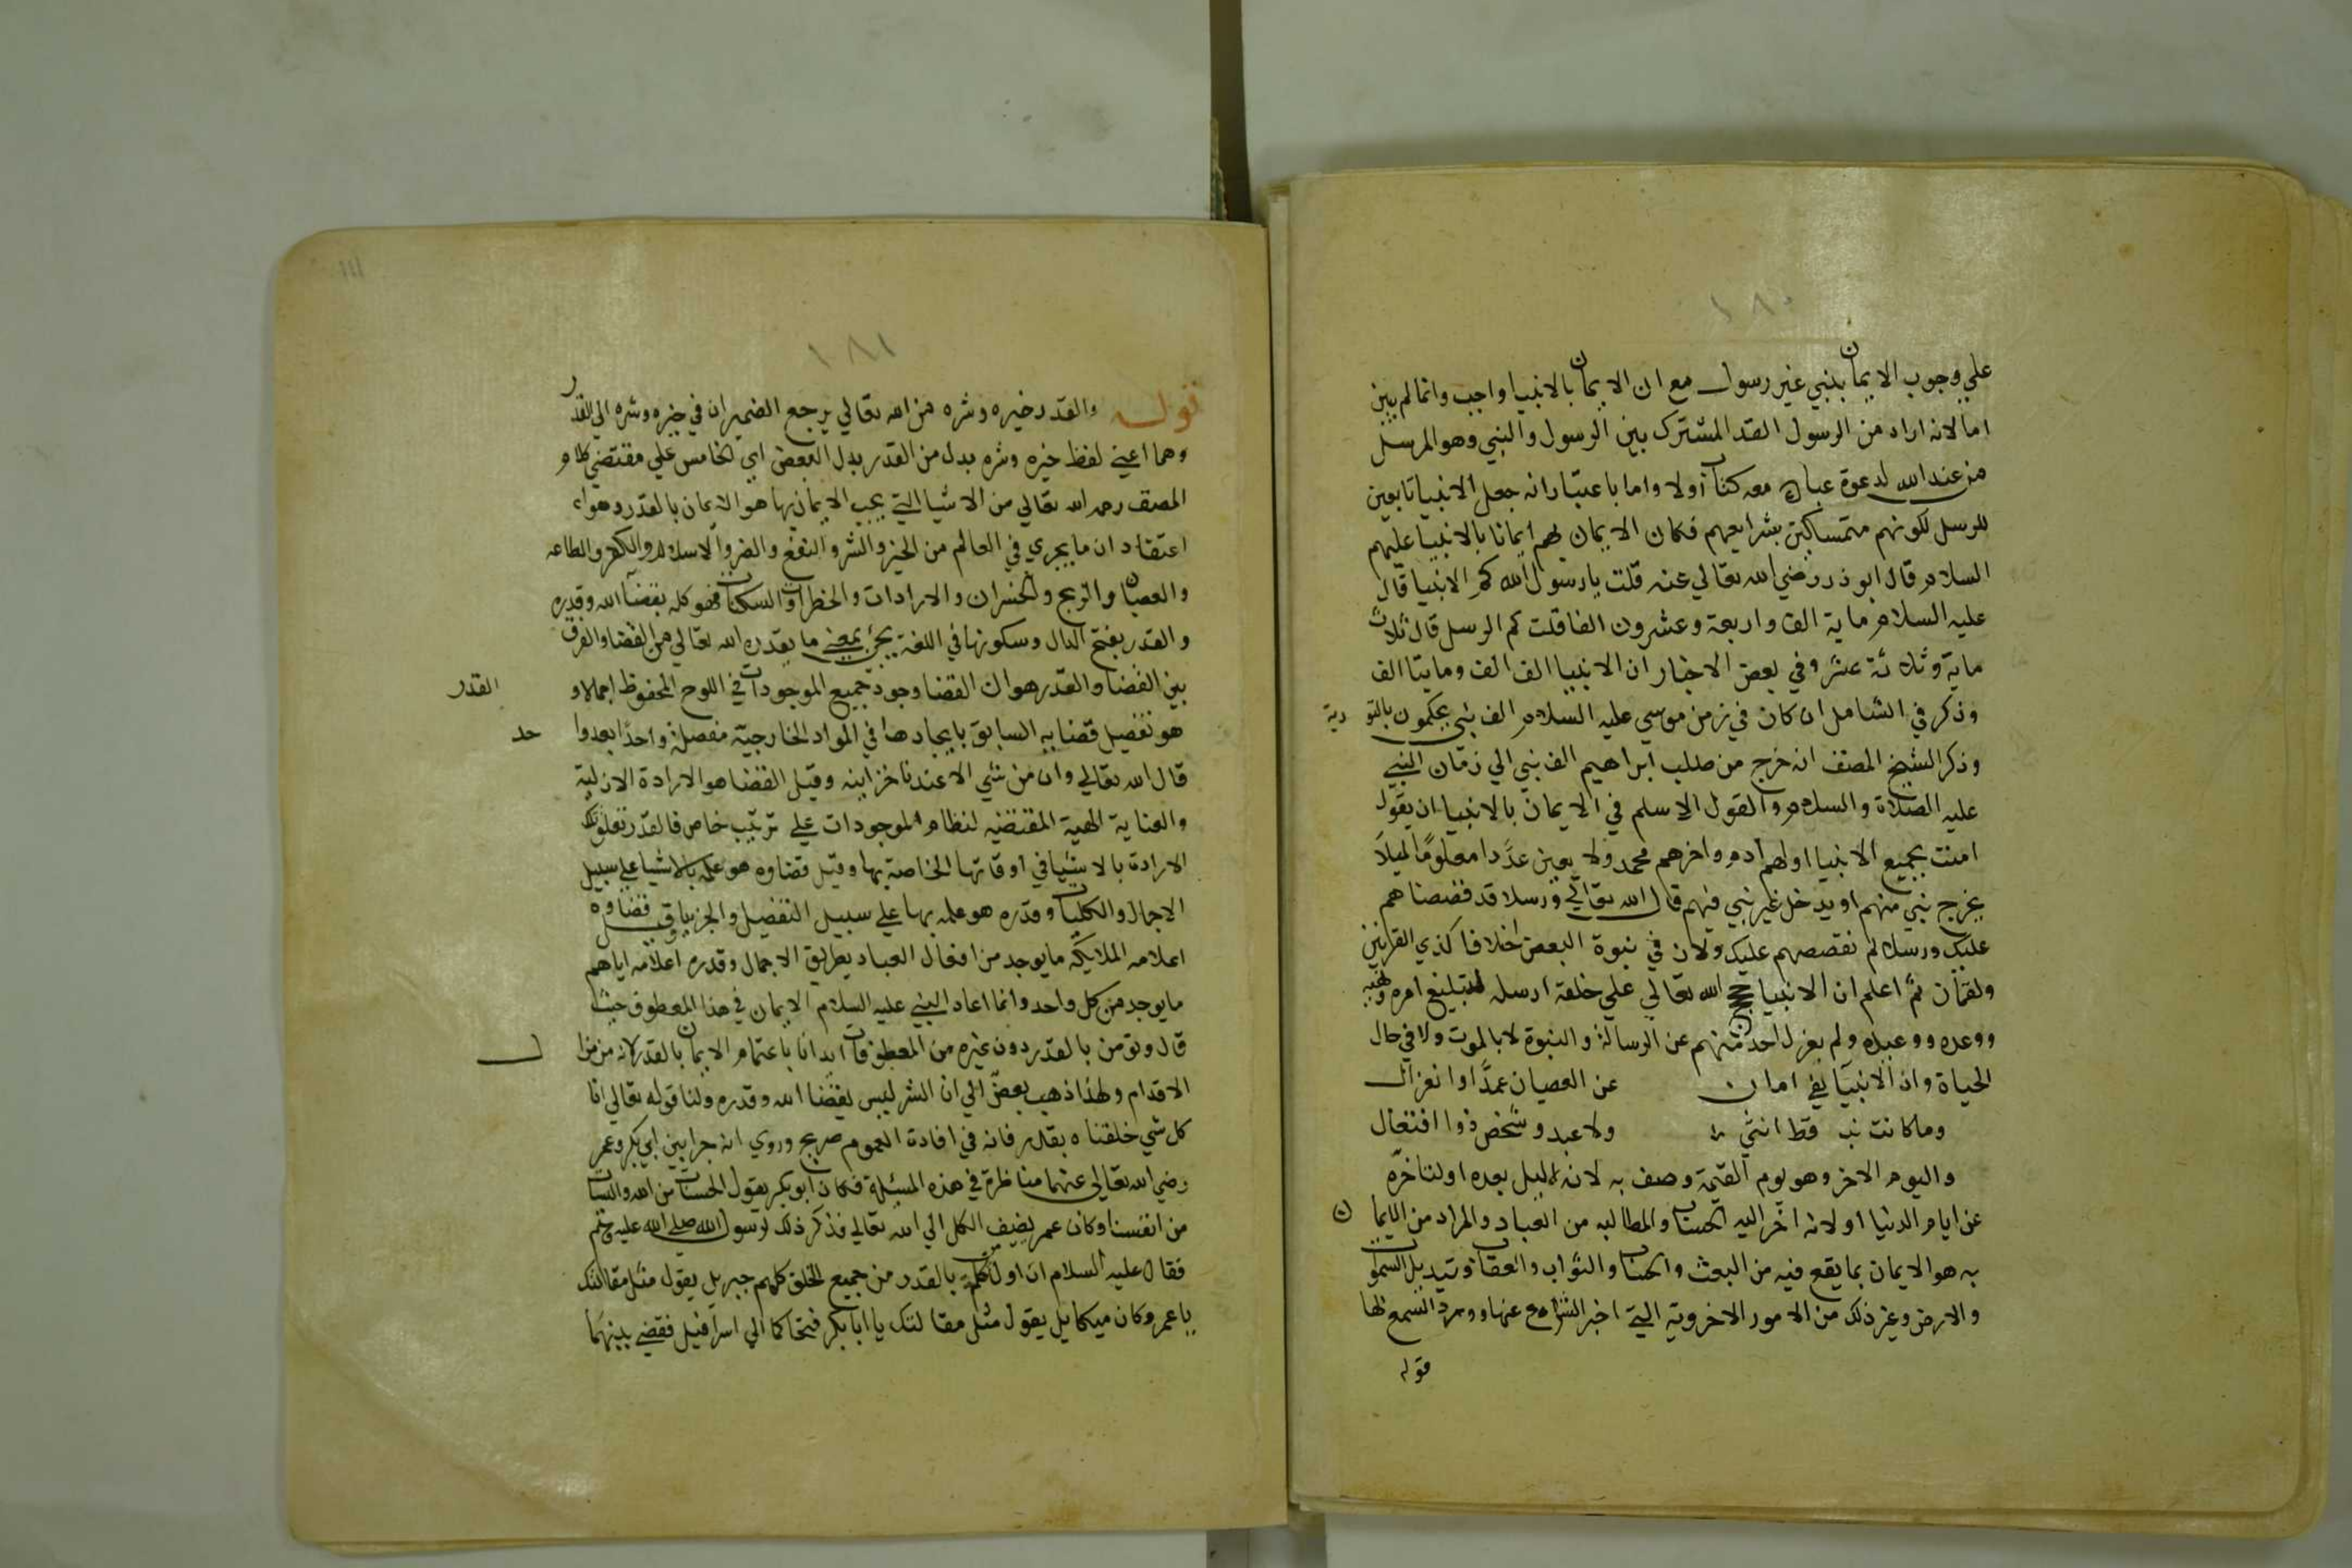 ١٨٠
علي وجوب الايمان بنبي غير رسول مع ان الايمان بالانبيا واجب وانما لم يبين
اما لانه اراد من الرسول القدر المشترك بين الرسول والنبي وهو المرسل
من عند الله لدعوة عباده معه كتاب اولا واما باعتبار انه جعل الانبيا تابعين
للرسل لكونهم متمسكين بشرايعهم فكان الايمان بهم ايمانا بالانبيا عليهم
السلام قال ابو ذر رضي الله تعالي عنه قلت يا رسول الله كم الانبيا قال
عليه السلام ماية الف واربعة وعشرون الفا قلت كم الرسل قال ثلاث
ماية وثلاثة عشر وفي بعض الاخبار ان الانبيا الف الف ومايتا الف
وذكر في الشامل ان كان في زمن موسي عليه السلام الف نبي يحكمون بالتورية
وذكر الشيخ المصنف انه خرج من صلب ابراهيم الف نبي الي زمان النبي
عليه الصلاة والسلام والقول الاسلم في الايمان بالانبيا ان يقول
امنت بجميع الانبيا اولهم ادم واخرهم محمد ولا يعين عددا معلوما ليلا
يخرج نبي منهم او يدخل غير نبي فيهم قال الله تعالي ورسلا قد قصصناهم
عليك ورسلا لم نقصصهم عليك ولان في نبوة البعض اختلافا كذي القرنين
ولقمان ثم اعلم ان الانبيا حجج الله تعالي علي خلقه ارسله لتبليغ امره ونهيه
ووعده ووعيده ولم يعزل احد منهم عن الرسالة والنبوة لا بالموت ولا في حال
الحياة وان الانبيا لفي امان عن العصيان عمدا او انعزال
وما كانت نبـ قط انثي ولا عبد وشخص ذو افتعال
واليوم الاخر وهو يوم القيمة وصف به لانه لا ليل بعده او لتاخره
عن ايام الدنيا او لانه اخر اليه الحساب والمطالبه من العباد والمراد من الايمان
به هو الايمان بما يقع فيه من البعث والحساب والثواب والعقاب وتبديل السموات
والارض وغير ذلك من الامور الاخروية التي اخبر الشرع عنها وورد السمع لها
قوله
١١١
١٨١
قوله والقدر خيره وشره من الله تعالي يرجع الضميران في خيره وشره الي القدر
وهما اعني لفظ خيره وشره بدل من القدر بدل البعض اي الخامس علي مقتضي كلام
المصنف رحمه الله تعالي من الاشيا التي يجب الايمان بها هو الايمان بالقدر وهو
اعتقاد ان ما يجري في العالم من الخير والشر والنفع والضر والاسلام والكفر والطاعه
والعصيان والربح والخسران والارادات والخطرات والسكنات فهو كله بقضا الله وقدره
والقدر بفتح الدال وسكونها في اللغة يجئ بمعني ما يقدره الله تعالي من القضا والفرق
بين القضا والقدر هو ان القضا وجود جميع الموجودات في اللوح المحفوظ اجمالا و القدر
هو تفصيل قضايه السابق بايجادها في المواد الخارجية مفصلة واحدا بعد واحد
قال الله تعالي وان من شي الا عندنا خزاينه وقيل القضا هو الارادة الازلية
والعناية الهية المقتضيه لنظام الموجودات علي ترتيب خاص فالقدر تعلق تلك
الارادة بالاشيا في اوقاتها الخاصة بها وقيل قضاوه هو علمه بالاشيا علي سبيل
الاجمال والكليات وقدره هو علمه بها علي سبيل التفصيل والجزييات وقيل قضاوه
اعلامه الملايكة ما يوجد من افعال العباد بطريق الاجمال وقدره اعلامه اياهم
ما يوجد من كل واحد وانما اعاد النبي عليه السلام الايمان في هذا المعطوف حيث
قال وتومن بالقدر دون غيره من المعطوفات ايدانا باهتمام الايمان بالقدر لانه من مزال
الاقدام ولهذا ذهب بعض الي ان الشر ليس بقضا الله وقدره ولنا قوله تعالي انا
كل شي خلقناه بقدر فانه في افادة العموم صريح وروي انه جرا بين ابي بكر وعمر
رضي الله تعالي عنهما مناظرة في هذه المسئلة فكان ابو بكر يقول الحسنات من الله والسيات
من انفسنا وكان عمر يضيف الكل الي الله تعالي فذكر ذلك لرسول الله صلي الله عليه وسلم
فقال عليه السلام ان اول من تكلم بالقدر من جميع الخلق كلهم جبريل يقول مثل مقالتك
يا عمر وكان ميكاييل يقول مثل مقالتك يا ابا بكر فتحاكما الي اسرافيل فقضي بينهما